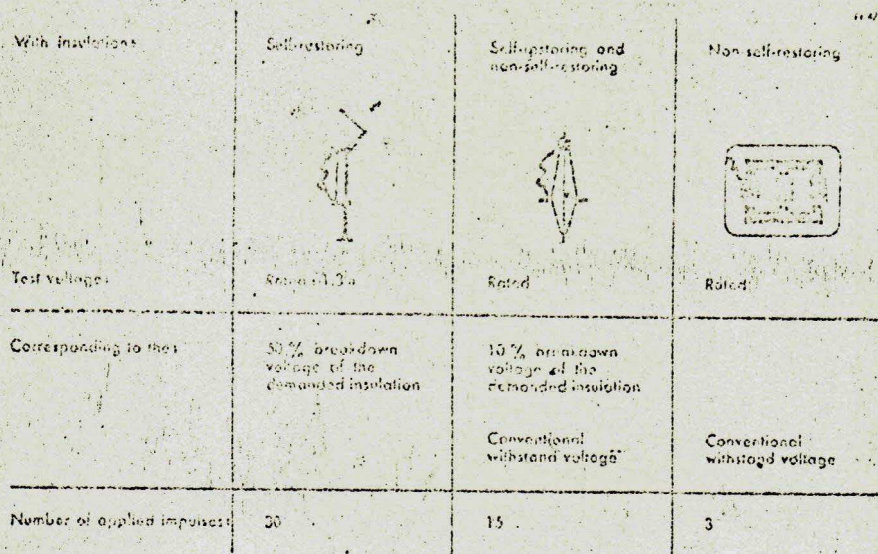 With insulations
Self-restoring
Self-restoring and
non-self-restoring
Non-self-restoring
Test voltages
Rated
Rated
Rated
Corresponding to the
50 % breakdown
voltage of the
demanded insulation
10 % breakdown
voltage of the
demanded insulation
Conventional
withstand voltage
Conventional
withstand voltage
Number of applied impulses
30
15
3